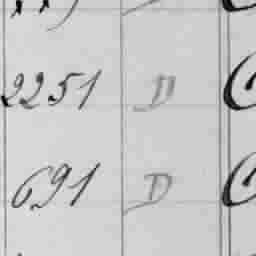 2251 D
691 D